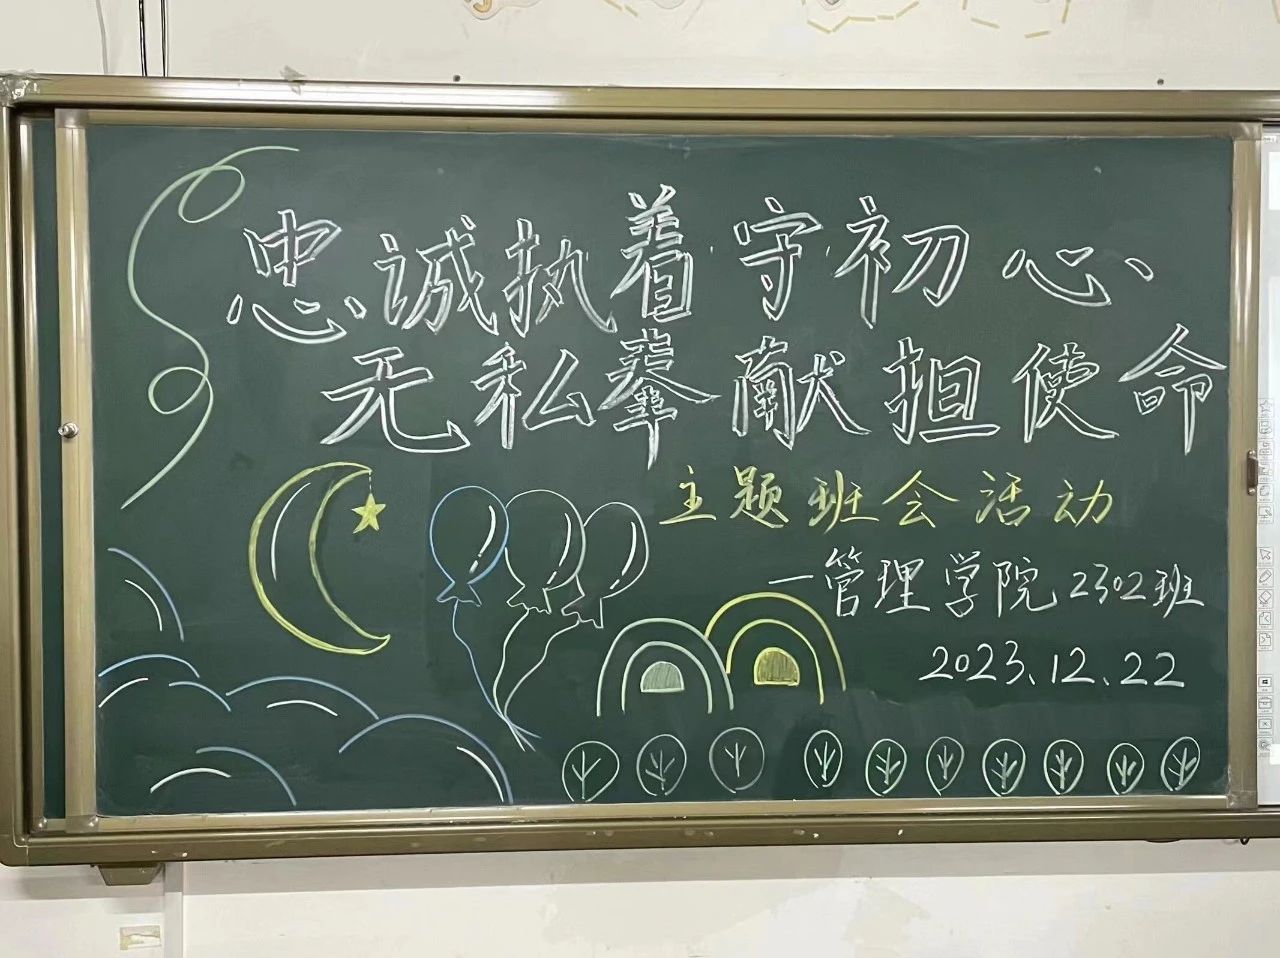 忠诚执着守初心
无私奉献担使命
主题班会活动
一管理学院2302班
2023.12.22